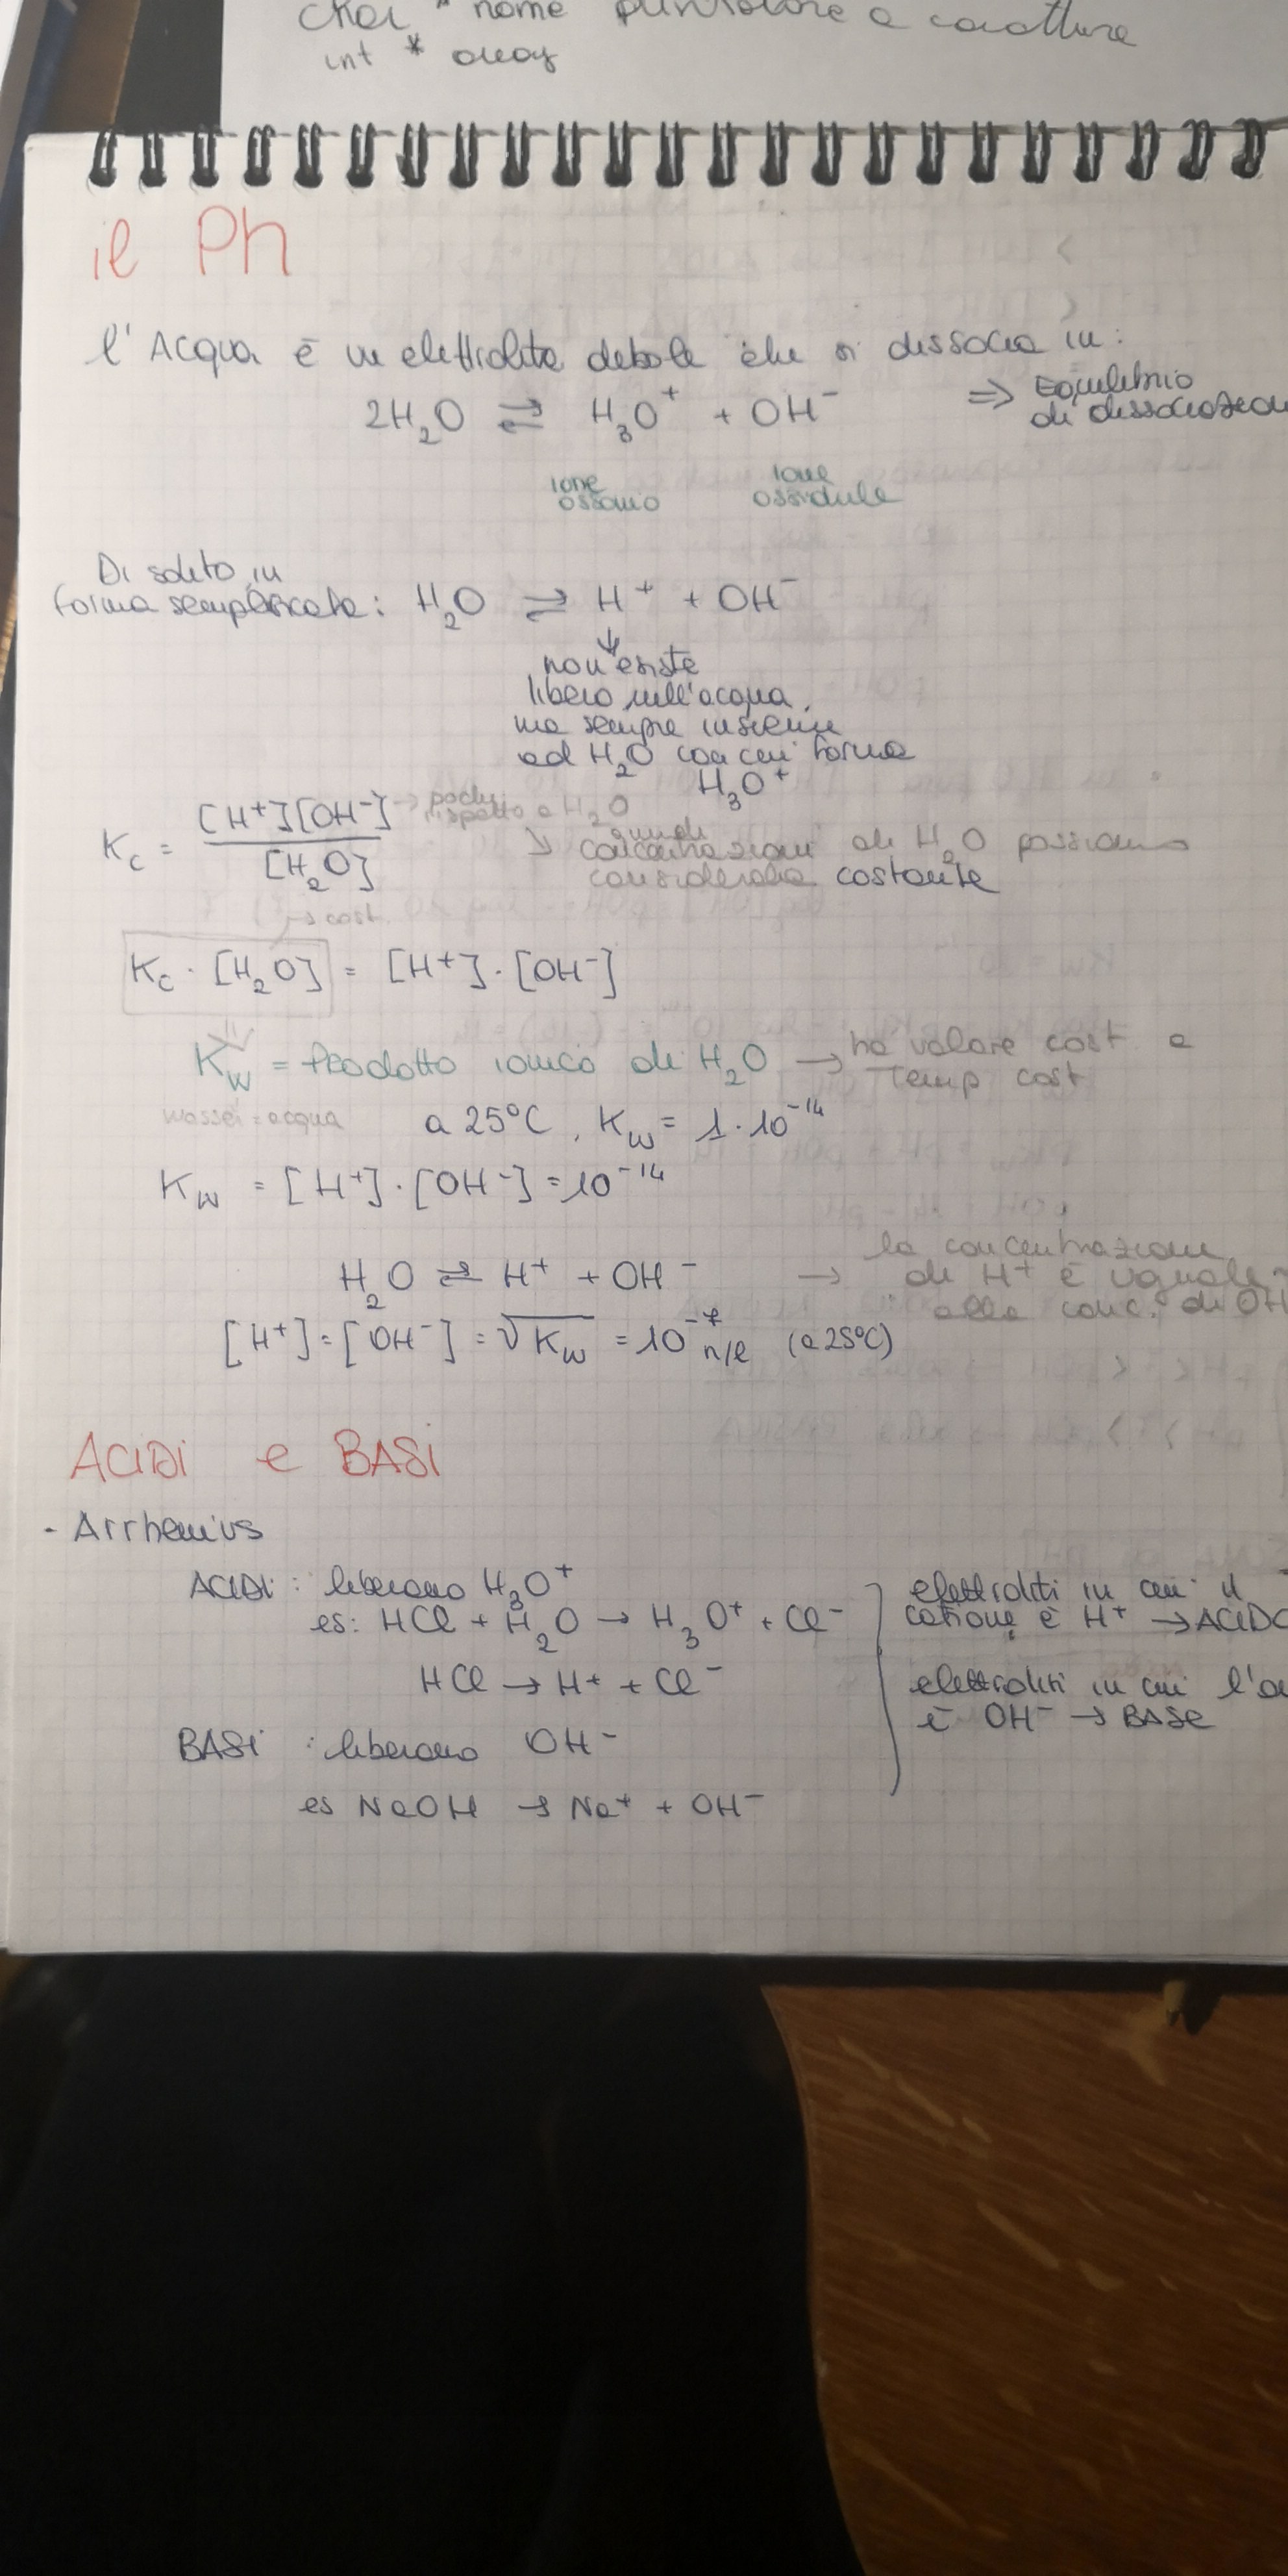 char * nome puntatore a carattere
int * array
il Ph
l'Acqua è un elettrolita debole che si dissocia in:
2H₂O ⇌ H₃O⁺ + OH⁻ ⇒ Equilibrio
di dissociazion
ione ossonio ione ossidrile
Di solito in
forma semplificata: H₂O ⇌ H⁺ + OH⁻
↓
non esiste
libero nell'acqua,
ma sempre insieme
ad H₂O con cui forma
H₃O⁺
Kc = [H⁺][OH⁻] / [H₂O] → pochi rispetto a H₂O
↘ quindi concentrazioni di H₂O possiamo
considerarla costante
→ cost.
Kc · [H₂O] = [H⁺] · [OH⁻]
Kw = Prodotto ionico di H₂O → ha valore cost. a
Temp cost
wasser = acqua a 25°C, Kw = 1 · 10⁻¹⁴
Kw = [H⁺] · [OH⁻] = 10⁻¹⁴
H₂O ⇌ H⁺ + OH⁻ → la concentrazione
di H⁺ è uguale
alla conc. di OH
[H⁺] = [OH⁻] = √Kw = 10⁻⁷ n/l (a 25°C)
ACIDI e BASI
- Arrhenius
ACIDI: liberano H₃O⁺
es: HCl + H₂O → H₃O⁺ + Cl⁻
HCl → H⁺ + Cl⁻
elettroliti in cui il
catione è H⁺ → ACIDO
elettroliti in cui l'a
è OH⁻ → BASE
BASI : liberano OH⁻
es NaOH → Na⁺ + OH⁻